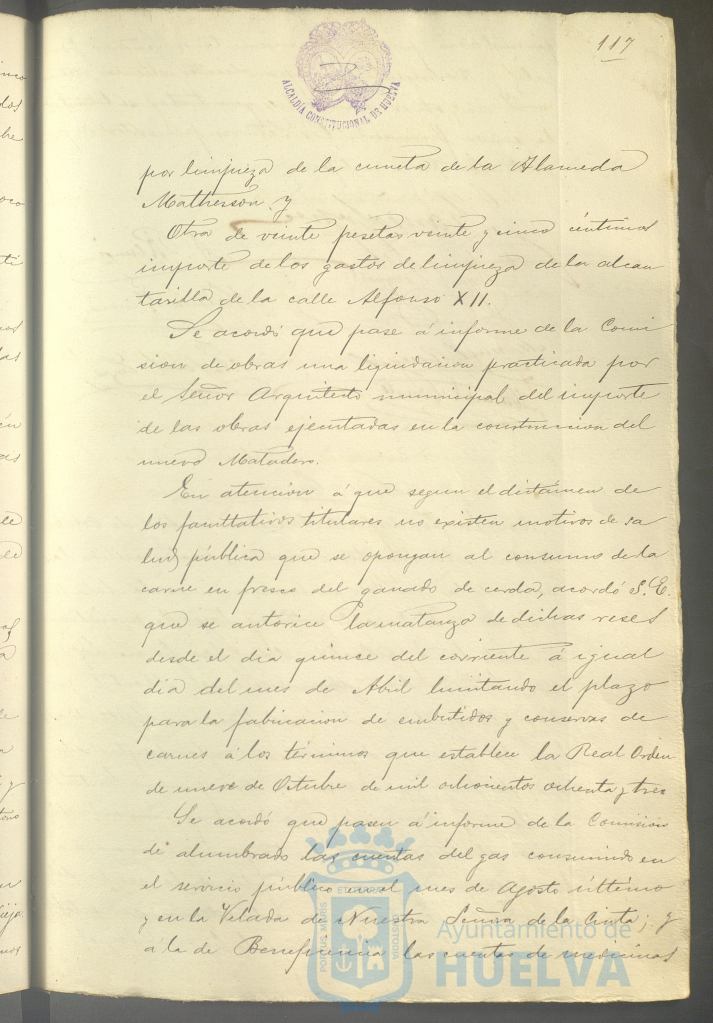 117
ALCALDÍA CONSTITUCIONAL DE HUELVA
por limpieza de la cuneta de la Alameda
Mathesson. y
Otra de veinte pesetas veinte y cinco céntimos
importe de los gastos de limpieza de la alcan
tarilla de la calle Alfonso XII.
Se acordó que pase á informe de la Comi
sion de obras una liquidacion practicada por
el Señor Arquitecto municipal del importe
de las obras ejecutadas en la construccion del
nuevo Matadero.
En atencion á que segun el dictámen de
los facultativos titulares no existen motivos de sa
lud pública que se opongan al consumo de la
carne en fresco del ganado de cerda, acordó S. E.
que se autorice la matanza de dichas reses
desde el dia quince del corriente á igual
dia del mes de Abril limitando el plazo
para la fabricacion de embutidos y conservas de
carnes á los términos que establece la Real Orden
de nueve de Octubre de mil ochocientos ochenta y tres
Se acordó que pasen á informe de la Comision
de alumbrado las cuentas del gas consumido en
el servicio público en el mes de Agosto último
y en la Velada de Nuestra Señora de la Cinta; y
á la de Beneficencia las cuentas de medicinas
PORTUS MARIS ET TERRAE CUSTODIA
Ayuntamiento de
HUELVA